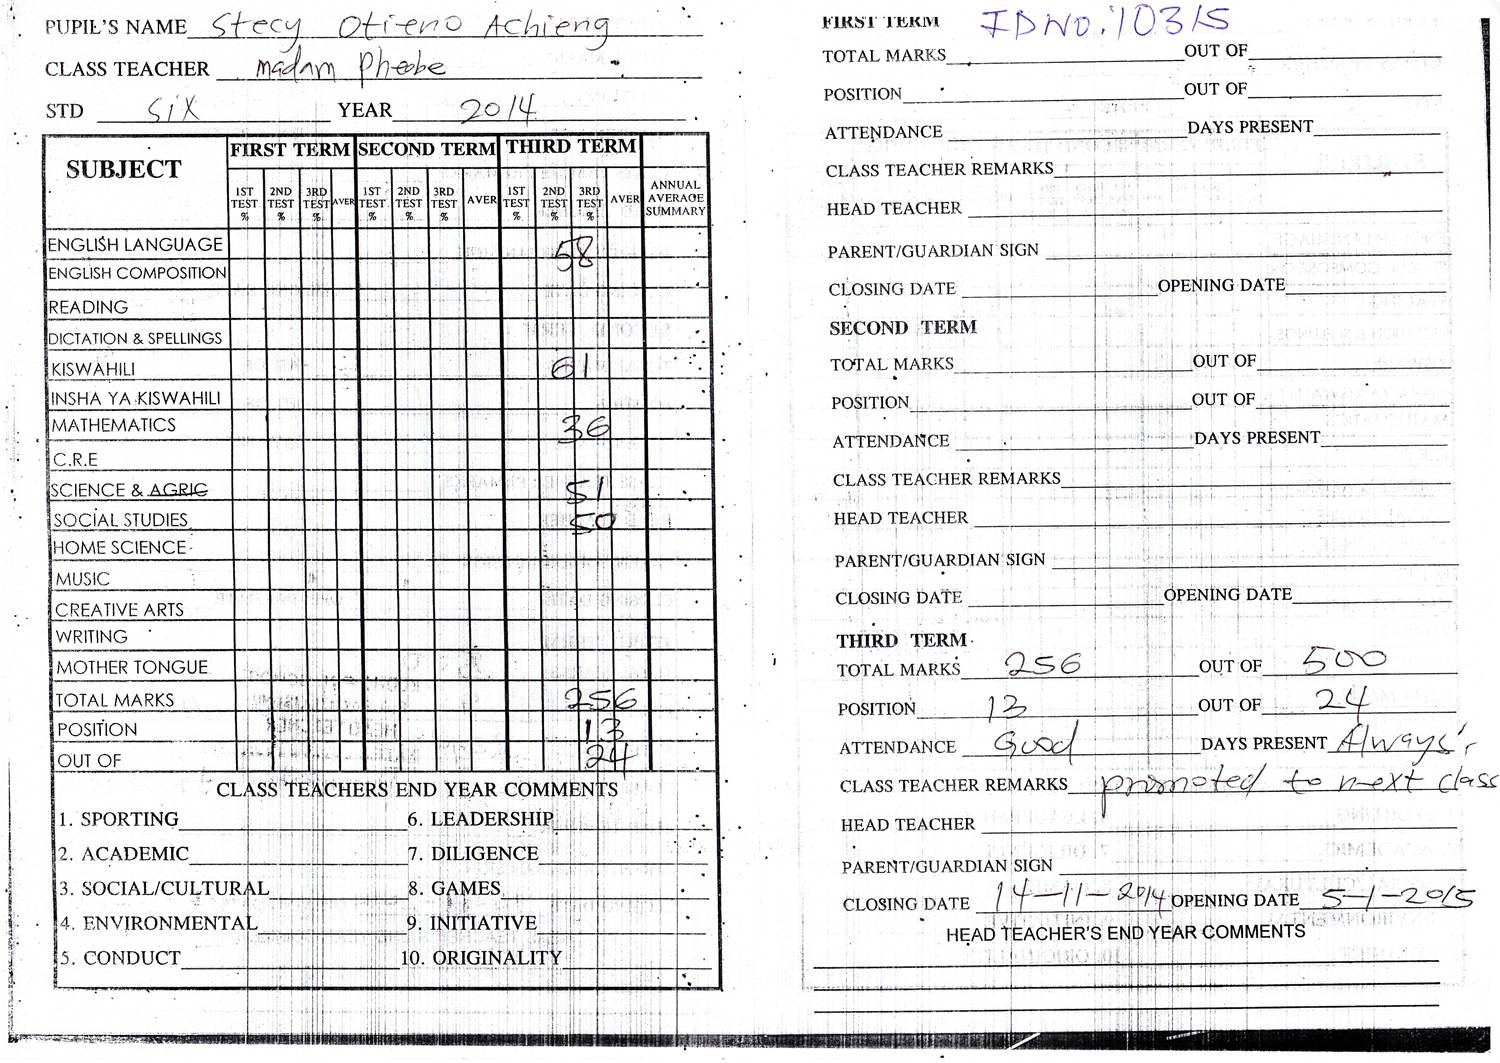 PUPIL'S NAME Stecy Otieno Achieng
CLASS TEACHER madam Phoebe
STD Six YEAR 2014
SUBJECT FIRST TERM SECOND TERM THIRD TERM
1ST TEST % 2ND TEST % 3RD TEST % AVER 1ST TEST % 2ND TEST % 3RD TEST % AVER 1ST TEST % 2ND TEST % 3RD TEST % AVER ANNUAL AVERAGE SUMMARY
ENGLISH LANGUAGE 58
ENGLISH COMPOSITION
READING
DICTATION & SPELLINGS
KISWAHILI 61
INSHA YA KISWAHILI
MATHEMATICS 36
C.R.E
SCIENCE & AGRIC 51
SOCIAL STUDIES 50
HOME SCIENCE
MUSIC
CREATIVE ARTS
WRITING
MOTHER TONGUE
TOTAL MARKS 256
POSITION 13
OUT OF 24
CLASS TEACHERS END YEAR COMMENTS
1. SPORTING 6. LEADERSHIP
2. ACADEMIC 7. DILIGENCE
3. SOCIAL/CULTURAL 8. GAMES
4. ENVIRONMENTAL 9. INITIATIVE
5. CONDUCT 10. ORIGINALITY
FIRST TERM IDNo. 10315
TOTAL MARKS OUT OF
POSITION OUT OF
ATTENDANCE DAYS PRESENT
CLASS TEACHER REMARKS
HEAD TEACHER
PARENT/GUARDIAN SIGN
CLOSING DATE OPENING DATE
SECOND TERM
TOTAL MARKS OUT OF
POSITION OUT OF
ATTENDANCE DAYS PRESENT
CLASS TEACHER REMARKS
HEAD TEACHER
PARENT/GUARDIAN SIGN
CLOSING DATE OPENING DATE
THIRD TERM
TOTAL MARKS 256 OUT OF 500
POSITION 13 OUT OF 24
ATTENDANCE Good DAYS PRESENT Always
CLASS TEACHER REMARKS promoted to next class
HEAD TEACHER
PARENT/GUARDIAN SIGN
CLOSING DATE 14-11-2014 OPENING DATE 5-1-2015
HEAD TEACHER'S END YEAR COMMENTS